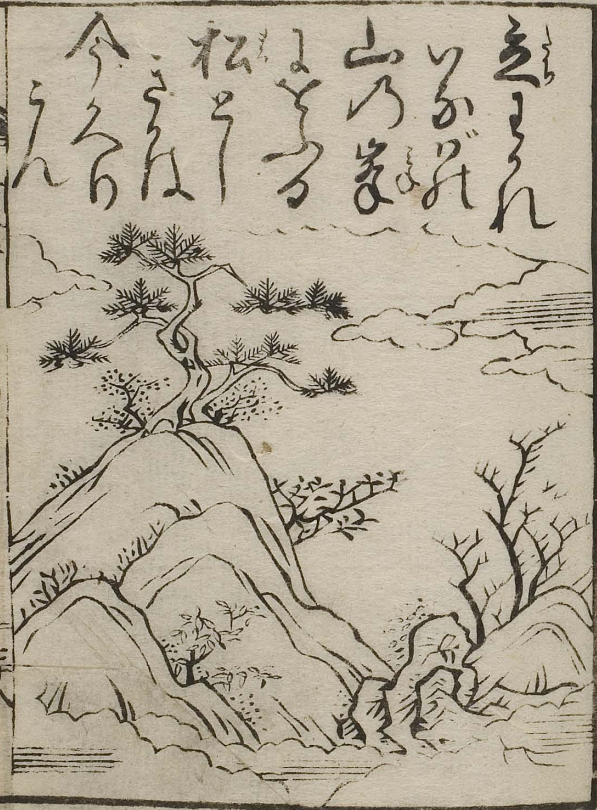 立わかれ
いなばの
山乃峯
におふる
松とし
きかは
今かへり
こん